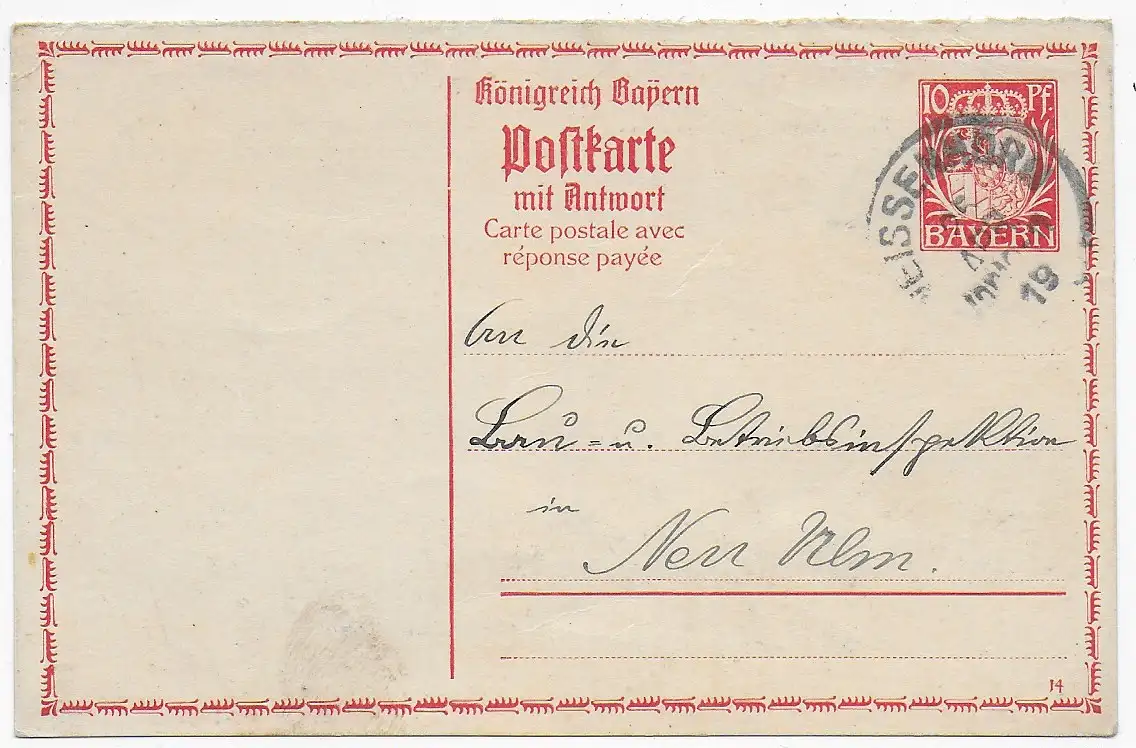 Königreich Bayern
Postkarte
mit Antwort
Carte postale avec
réponse payée
10 Pf.
BAYERN
WEISSENHORN
19
An die
Bau- u. Betriebsinspektion
in
Neu Ulm.
14